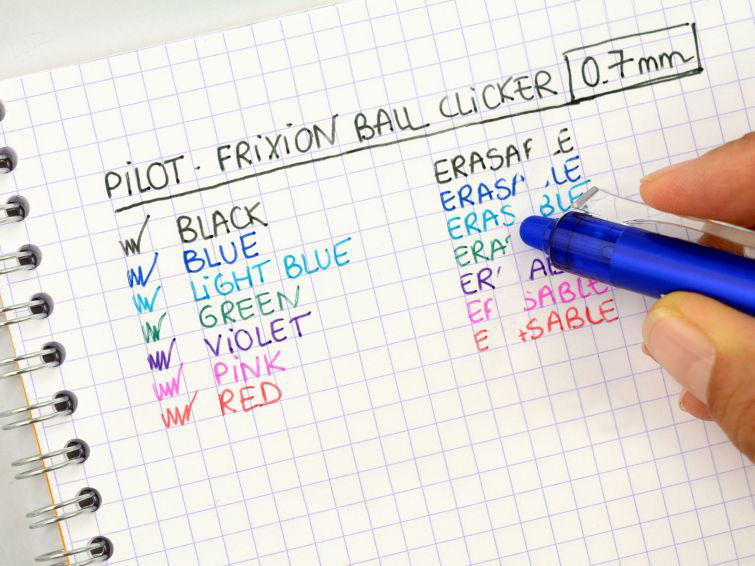 PILOT. FRIXION BALL CLICKER 0.7mm
BLACK
BLUE
LIGHT BLUE
GREEN
VIOLET
PINK
RED
ERASA LE
ERAS LE
ERAS BLE
ERA
ER AB
ER SABLE
E SABLE